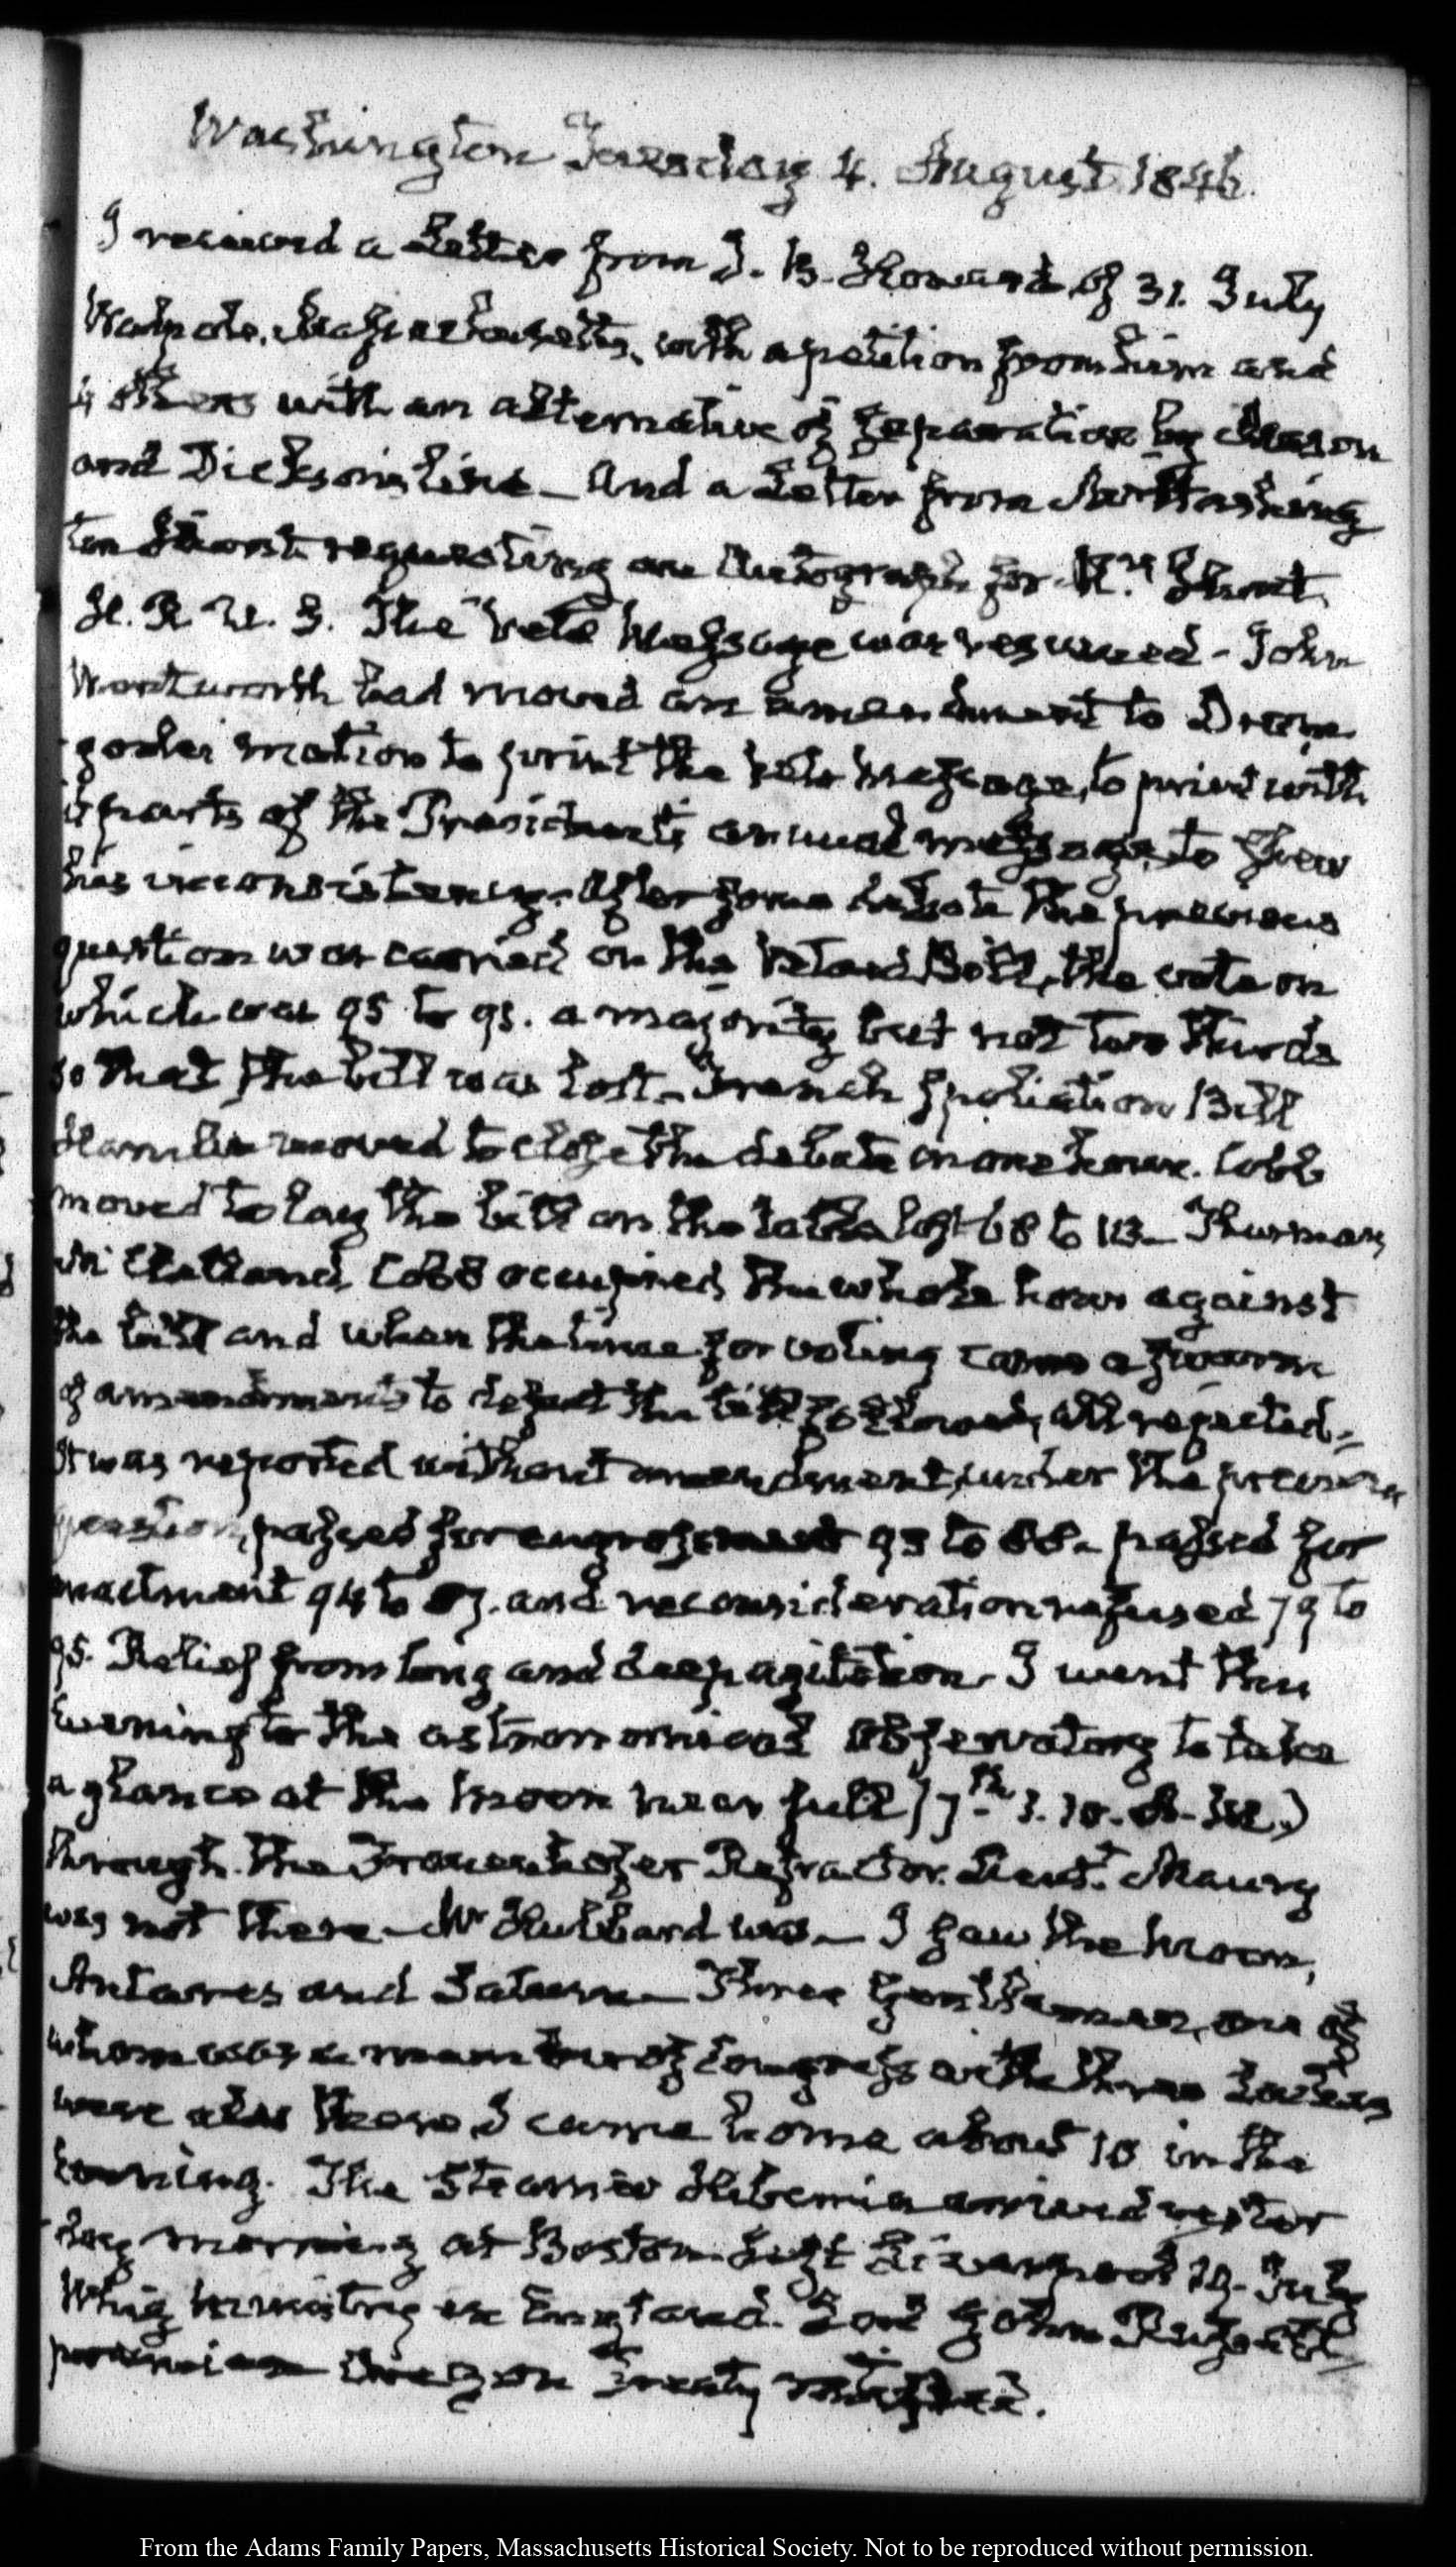 Washington Tuesday 4. August 1846.
I received a Letter from J. B. Howard of 31. July
Walpole, Massachusetts, with a petition from him and
4 others with an alternative of separation by Mason
and Dickson's line — And a Letter from
requesting an Autograph for
H. R. U. S. The Veto Message was resumed - John
Wentworth had moved an amendment to Drom
goole's motion to print the Veto Message, to print with
it parts of the President's annual message, to shew
his inconsistency. After some debate the previous
question was carried on the Vetoed Bill, the vote on
which was 95 to 91. a majority but not two thirds
so that the bill was lost - French Spoliation Bill
Hamlin moved to close the debate in one hour. Cobb
moved to lay the bill on the table lost 68 to 113 — Thurman,
and Cobb occupied the whole hour against
the bill and when the time for voting came a swarm
of amendments to defeat the bill followed, all rejected.
It was reported without amendment, under the previous
question, passed for engrossment 93 to 88. passed for
enactment 94 to 87. and reconsideration refused 79 to
95. Relief from long and deep agitation. I went this
Evening to the astronomical Observatory to take
a glance at the Moon near full
through the Frauenhofer Refractor. Lieut.t Maury
was not there — Mr Hubbard was — I saw the Moon,
Antares and Saturn — Three Gentlemen, one of
whom was a member of Congress with three Ladies
were also there. I came home about 10 in the
Evening. The Steamer Hibernia arrived yester
day morning at Boston. left Liverpool 19. July
Whig Ministry in England. Lord John Russell
premier Oregon Treaty ratified.
From the Adams Family Papers, Massachusetts Historical Society. Not to be reproduced without permission.